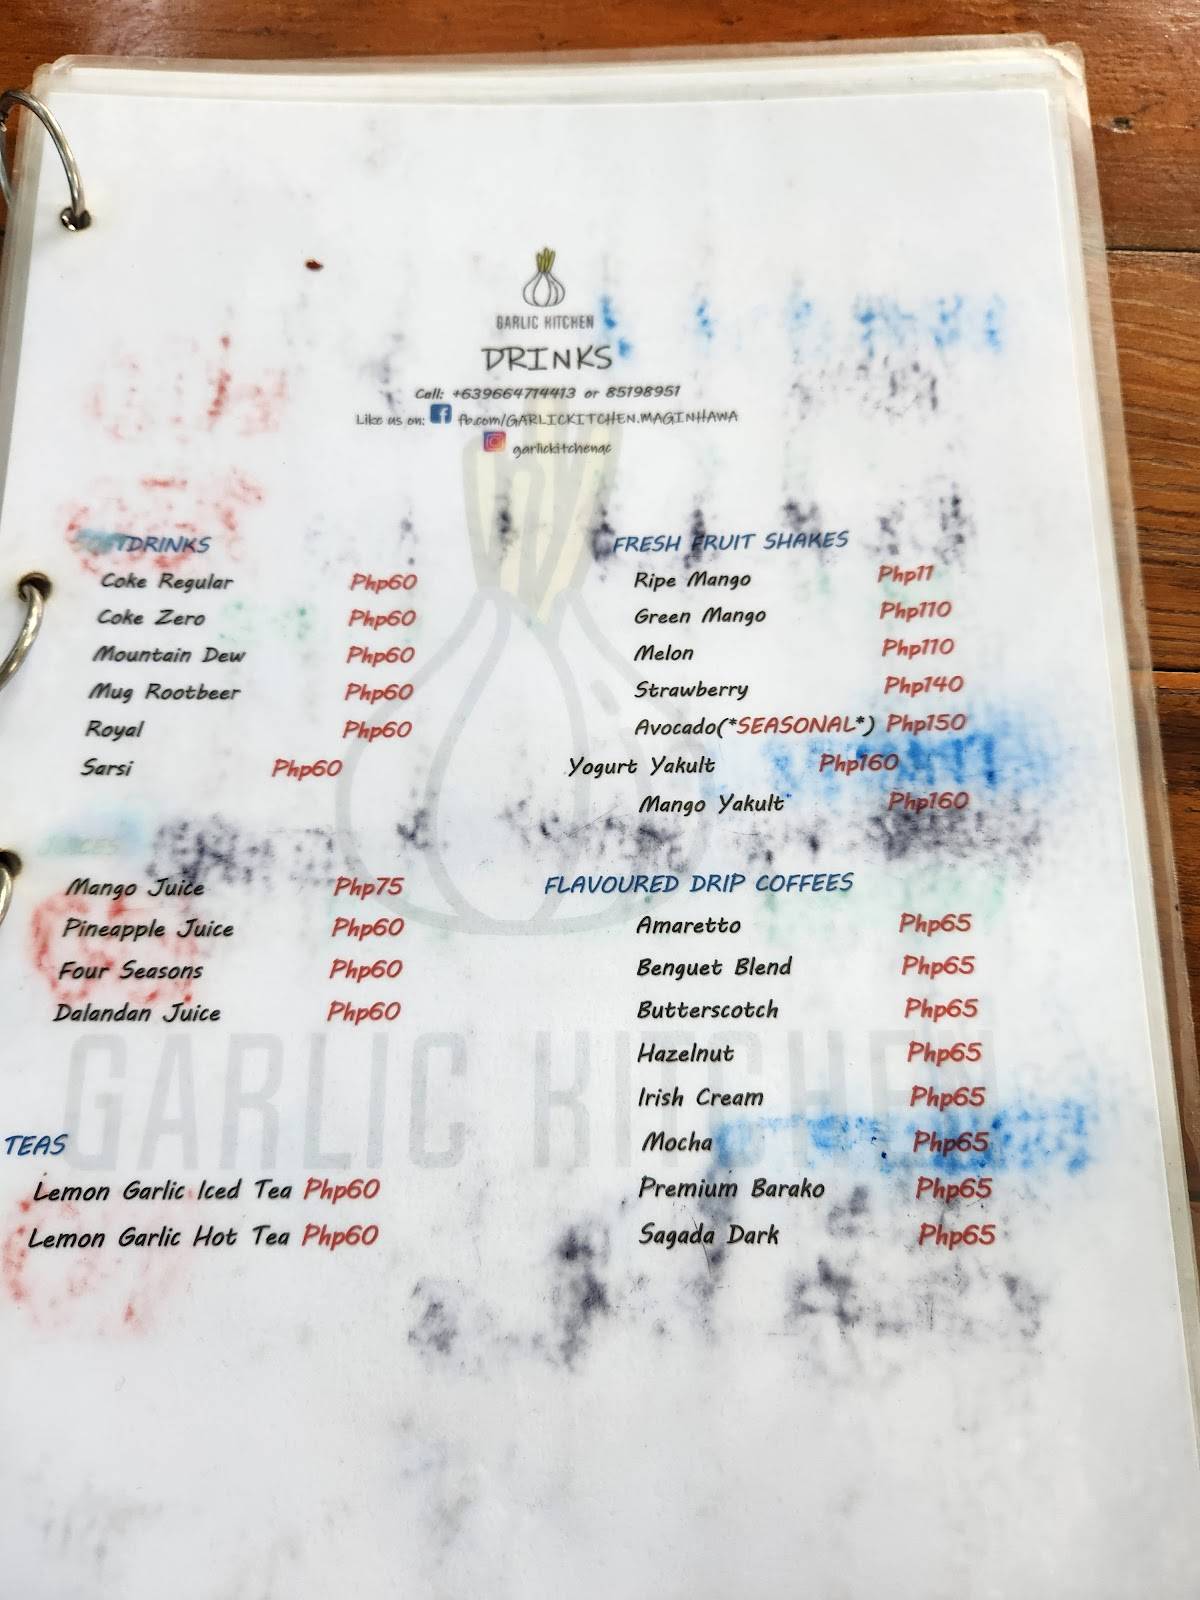 GARLIC KITCHEN
DRINKS
Call: +639664714413 or 85198951
Like us on: fb.com/GARLICKITCHEN.MAGINHAWA
garlickitchenqc
DRINKS
Coke Regular Php60
Coke Zero Php60
Mountain Dew Php60
Mug Rootbeer Php60
Royal Php60
Sarsi Php60
JUICES
Mango Juice Php75
Pineapple Juice Php60
Four Seasons Php60
Dalandan Juice Php60
TEAS
Lemon Garlic Iced Tea Php60
Lemon Garlic Hot Tea Php60
FRESH FRUIT SHAKES
Ripe Mango Php11
Green Mango Php110
Melon Php110
Strawberry Php140
Avocado(*SEASONAL*) Php150
Yogurt Yakult Php160
Mango Yakult Php160
FLAVOURED DRIP COFFEES
Amaretto Php65
Benguet Blend Php65
Butterscotch Php65
Hazelnut Php65
Irish Cream Php65
Mocha Php65
Premium Barako Php65
Sagada Dark Php65
GARLIC KITCHEN